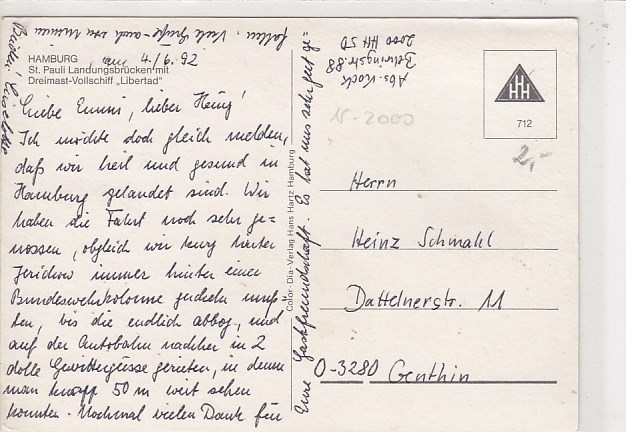 HAMBURG
St. Pauli Landungsbrücken mit
Dreimast-Vollschiff „Libertad"
am 4./6. 92
Liebe Emmi, lieber Heinz!
Ich möchte doch gleich melden,
daß wir heil und gesund in
Hamburg gelandet sind. Wir
haben die Fahrt noch sehr ge-
nossen, obgleich wir kurz hinter
Jerichow immer hinter einer
Bundeswehrkolonne zuckeln muß-
ten, bis die endlich abbog, und
auf der Autobahn nachher in 2
dolle Gewittergüsse gerieten, in denen
man knapp 50 m weit sehen
konnten. Nochmal vielen Dank für
Eure Gastfreundschaft. Es hat uns sehr gut ge-
fallen. Viele Grüße - auch von
Beiden! Liselotte
Color-Dia-Verlag Hans Hartz Hamburg
Abs. Koch
Behringstr. 88
2000 HH 50
HHH
712
N-2000
2,-
Herrn
Heinz Schmahl
Dattelnerstr. 11
O-3280 Genthin